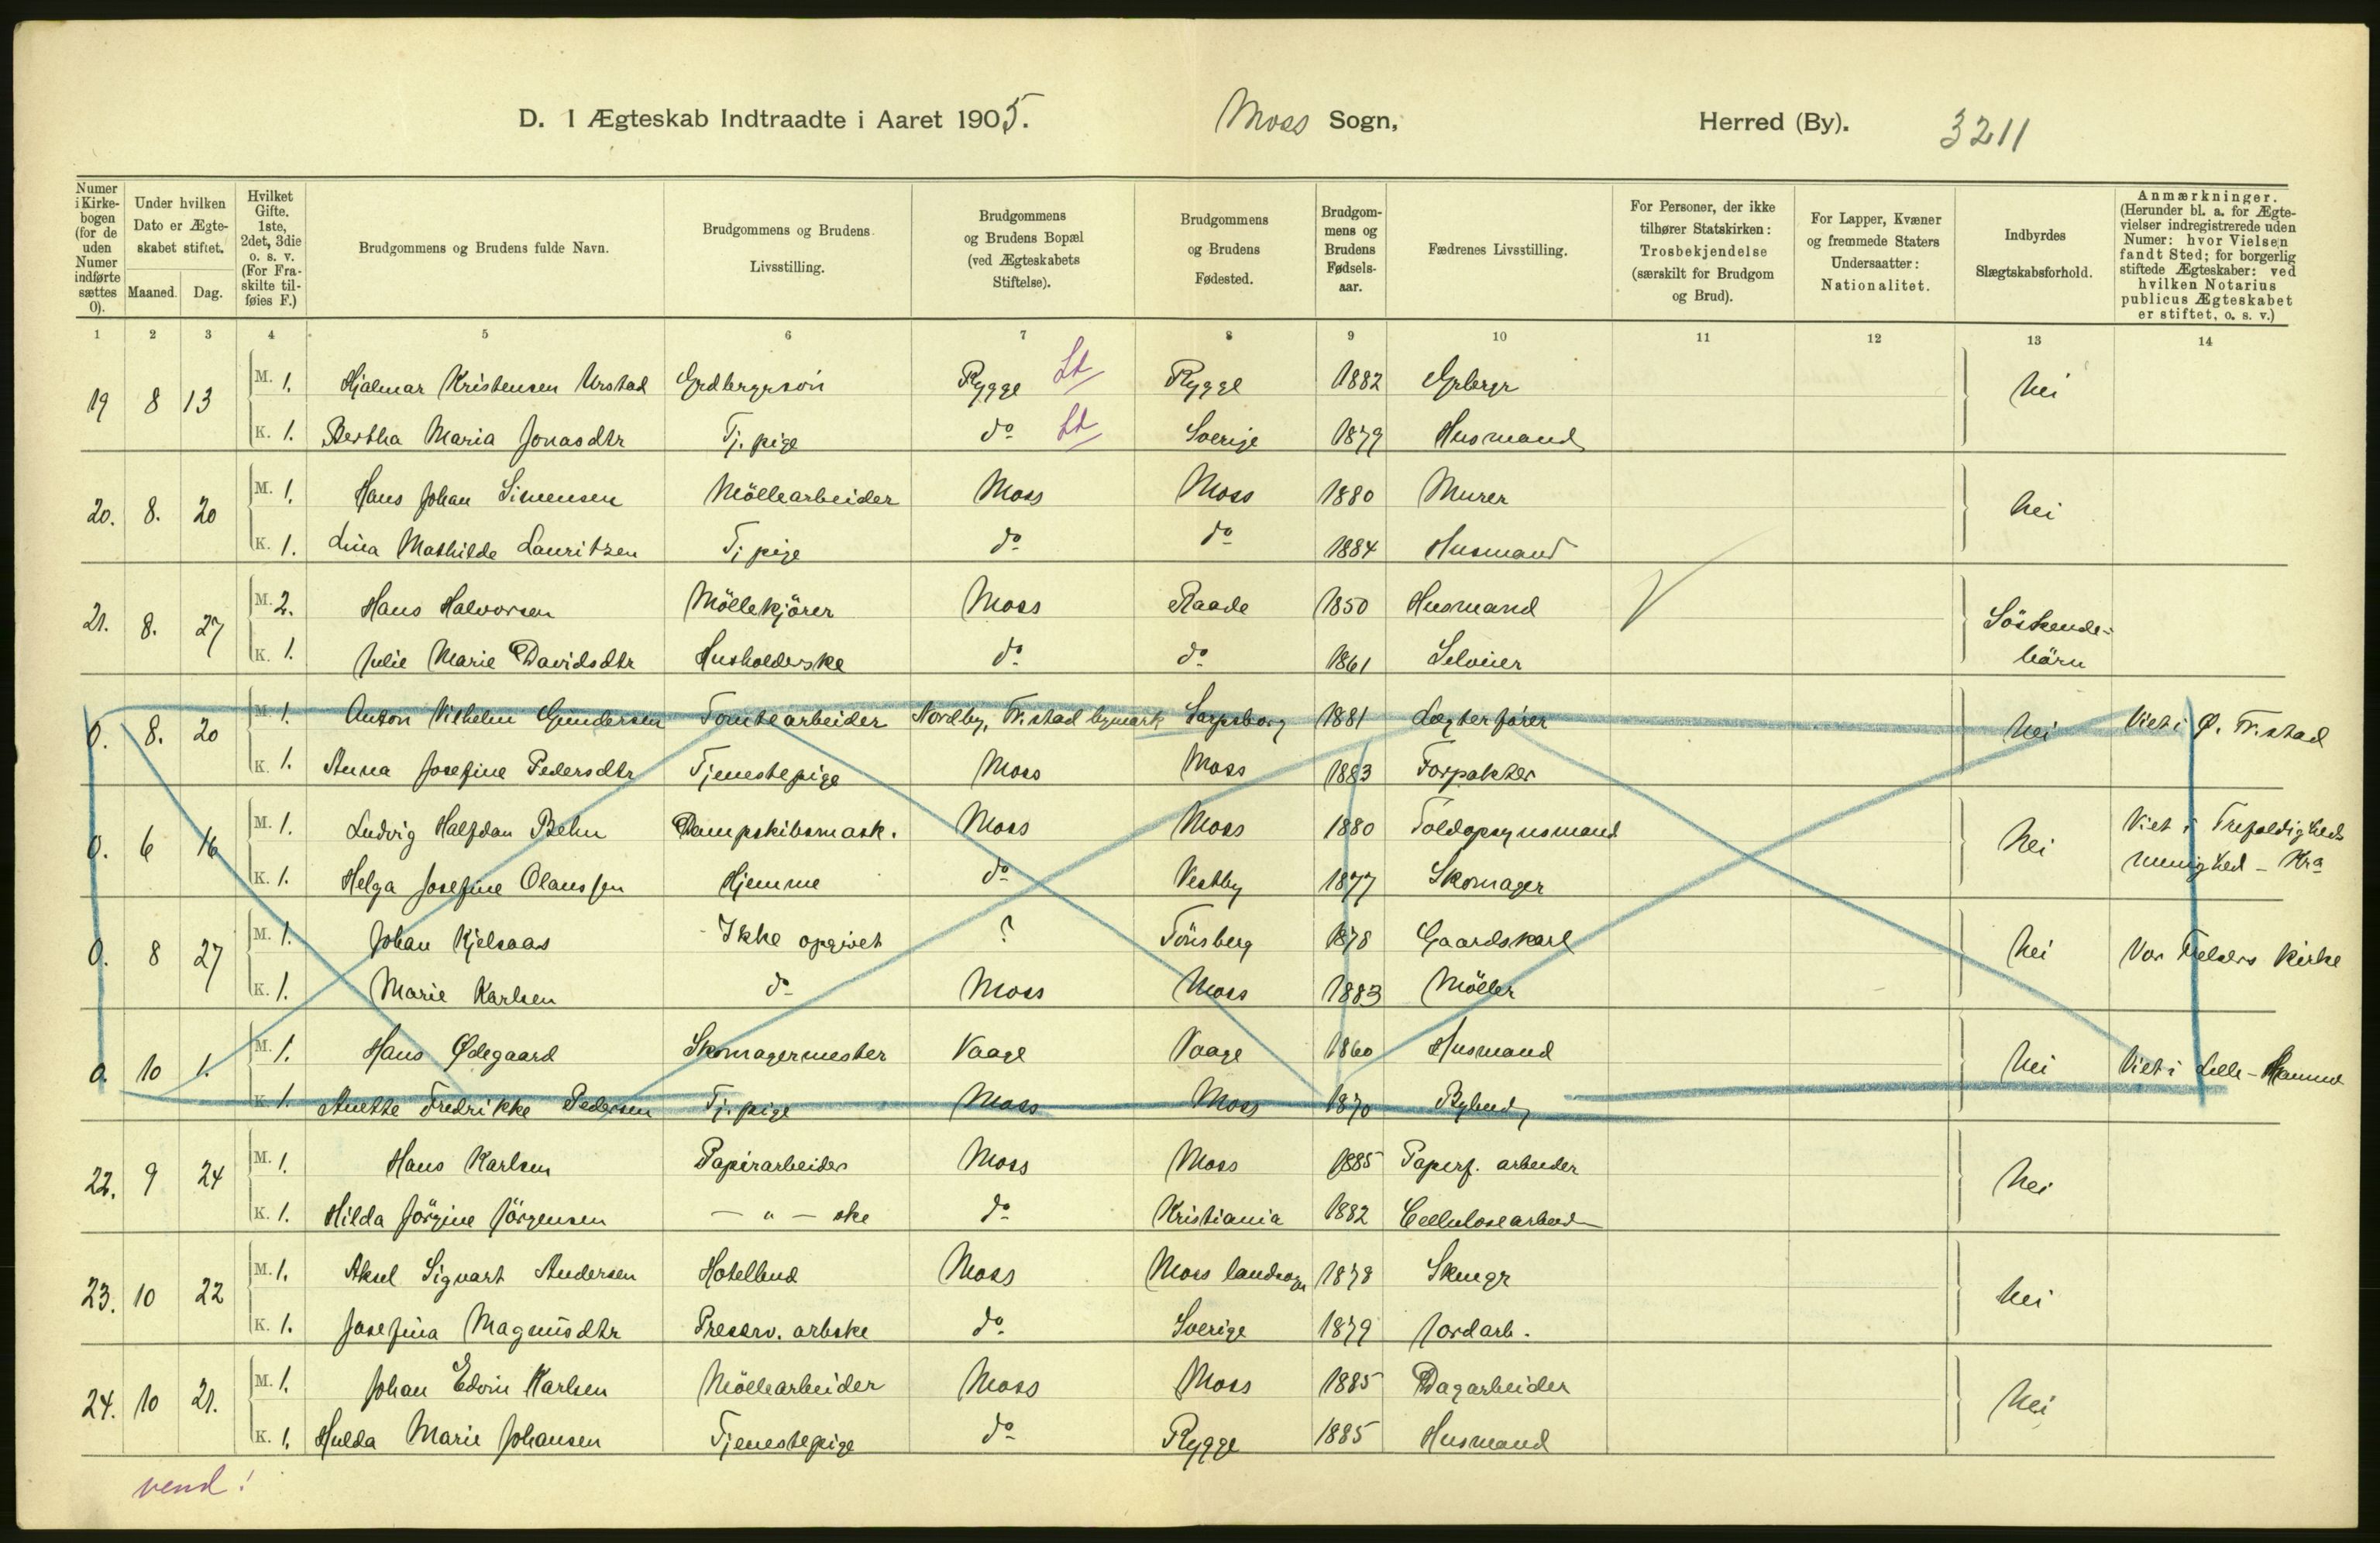 D. I Ægteskab Indtraadte i Aaret 1905. Moss Sogn, Herred (By). 3211
Numer i Kirkebogen (for de uden Numer indførte sættes 0).
Under hvilken Dato er Ægteskabet stiftet.
Maaned. Dag.
Hvilket Gifte. 1ste, 2det, 3die o. s. v. (For Fraskilte tilføies F.)
Brudgommens og Brudens fulde Navn.
Brudgommens og Brudens Livsstilling.
Brudgommens og Brudens Bopæl (ved Ægteskabets Stiftelse).
Brudgommens og Brudens Fødested.
Brudgommens og Brudens Fødselsaar.
Fædrenes Livsstilling.
For Personer, der ikke tilhører Statskirken: Trosbekjendelse (særskilt for Brudgom og Brud).
For Lapper, Kvæner og fremmede Staters Undersaatter: Nationalitet.
Indbyrdes Slægtskabsforhold.
Anmærkninger. (Herunder bl. a. for Ægtevielser indregistrerede uden Numer: hvor Vielsen fandt Sted; for borgerlig stiftede Ægteskaber: ved hvilken Notarius publicus Ægteskabet er stiftet, o. s. v.)
1 2 3 4 5 6 7 8 9 10 11 12 13 14
19 8 13 M. 1. Hjalmar Kristensen Urstad Grdbrgrsön Rygge Ld Rygge 1882 Grbrgr nei
K. 1. Bertha Maria Jonasdtr Tj. pige do Ld Sverige 1879 Husmand
20. 8. 20 M. 1. Hans Johan Simensen Möllearbeider Moss Moss 1880 Murer nei
K. 1. Lina Mathilde Lauritzen Tj pige do do 1884 Husmand
21. 8. 27 M. 2. Hans Halvorsen Möllekjörer Moss Raade 1850 Husmand Söskende-
K. 1. Julie Marie Davidsdtr Husholderske do do 1861 Selveier börn
0. 8. 20 M. 1. Anton Vilhelm Gundersen Tomtearbeider Nordby, Fr.stad bymark Sarpsborg 1881 Lægterfører nei Viet i Ø. Fr.stad
K. 1. Anna Josefine Pedersdtr Tjenestepige Moss Moss 1883 Forpakter
0. 6 16 M. 1. Ludvig Halfdan Behn Dampskibsmask. Moss Moss 1880 Toldopsynsmand nei Viet i Trefoldigheds
K. 1. Helga Josefine Olaussen Hjemme do Vestby 1877 Skomager menighed - Kra
0. 8 27 M. 1. Johan Kjelsaas Ikke opgivet ? Tönsberg 1878 Gaardskarl nei Vor Frelsers Kirke
K. 1. Marie Karlsen do Moss Moss 1883 Möller
0. 10 1. M. 1. Hans Ødegaard Skomagermester Vaage Vaage 1860 Husmand nei Viet i Lille-Hammer
K. 1. Anette Fredrikke Pedersen Tj. pige Moss Moss 1870 Bybud
22. 9 24 M. 1. Hans Karlsen Papirarbeider Moss Moss 1885 Papirf. arbeider nei
K. 1. Hilda Jörgine Jörgensen — " — ske do Kristiania 1882 Cellulosearbeid
23. 10 22 M. 1. Aksel Sigvart Andersen Hotelbud Moss Moss landsogn 1878 Skmgr nei
K. 1. Josefina Magnüsdtr Preserv. arbske do Sverige 1879 Jordarb.
24. 10 21. M. 1. Johan Edvin Karlsen Möllearbeider Moss Moss 1885 Dagarbeider nei
K. 1. Hulda Marie Johansen Tjenestepige do Rygge 1885 Husmand
vend!